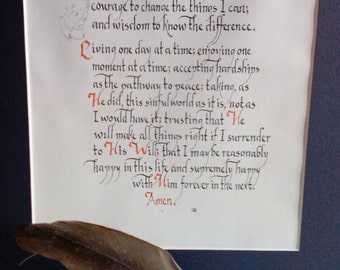 courage to change the things I can;
and wisdom to know the difference.
Living one day at a time; enjoying one
moment at a time; accepting hardships
as the pathway to peace; taking, as
He did, this sinful world as it is, not as
I would have it; trusting that He
will make all things right if I surrender
to His Will; that I may be reasonably
happy in this life and supremely happy
with Him forever in the next.
Amen.